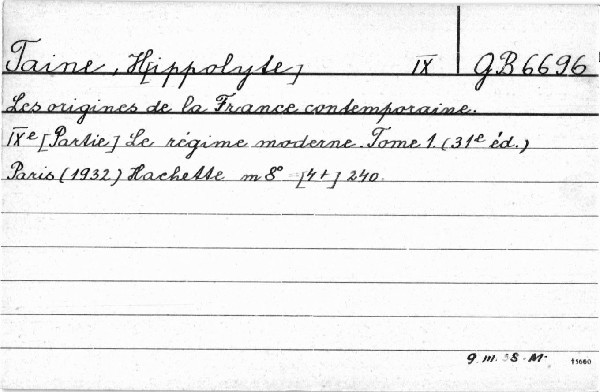 Taine, H[ippolyte] IX GB6696
Les origines de la France contemporaine.
IXe [Partie] Le régime moderne. Tome 1. (31e éd.)
Paris (1932) Hachette m 8° [4+] 240.
g. m. S. M. 15660